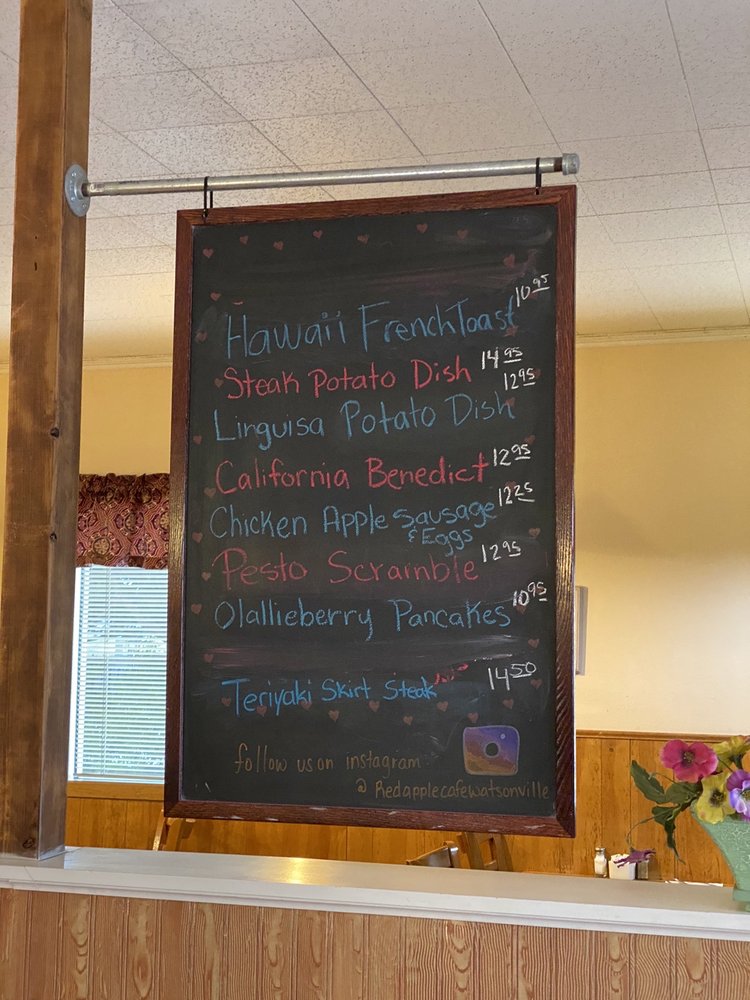 Hawaii French Toast 10.95
Steak Potato Dish 14.95
Linguisa Potato Dish 12.95
California Benedict 12.95
Chicken Apple Sausage 12.25
& Eggs
Pesto Scramble 12.95
Olallieberry Pancakes 10.95
Teriyaki Skirt Steak 14.50
follow us on instagram
@ Redapplecafewatsonville